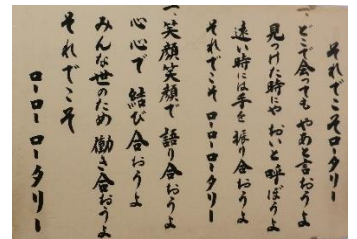 それでこそロータリー
一、どこで会っても やあと言おうよ
見つけた時にや おいと呼ぼうよ
遠い時には手を振り合おうよ
それでこそ ローローロータリー
一、笑顔笑顔で 語り合おうよ
心心で 結び合おうよ
みんな世のため 働き合おうよ
それでこそ
ローローロータリー